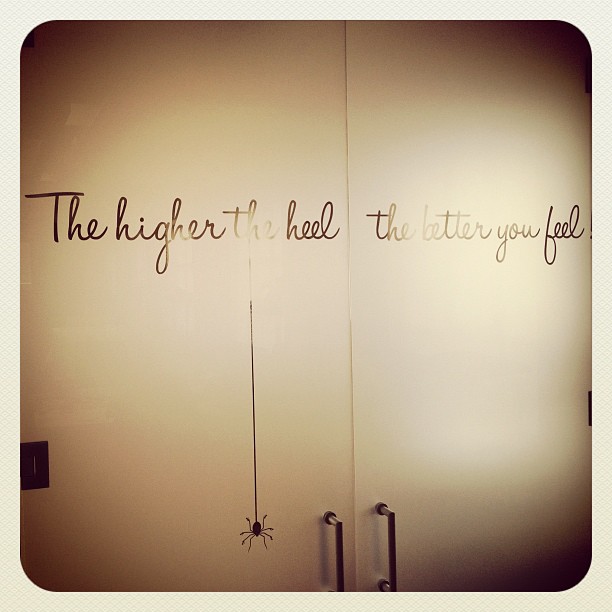 The higher the heel the better you feel!